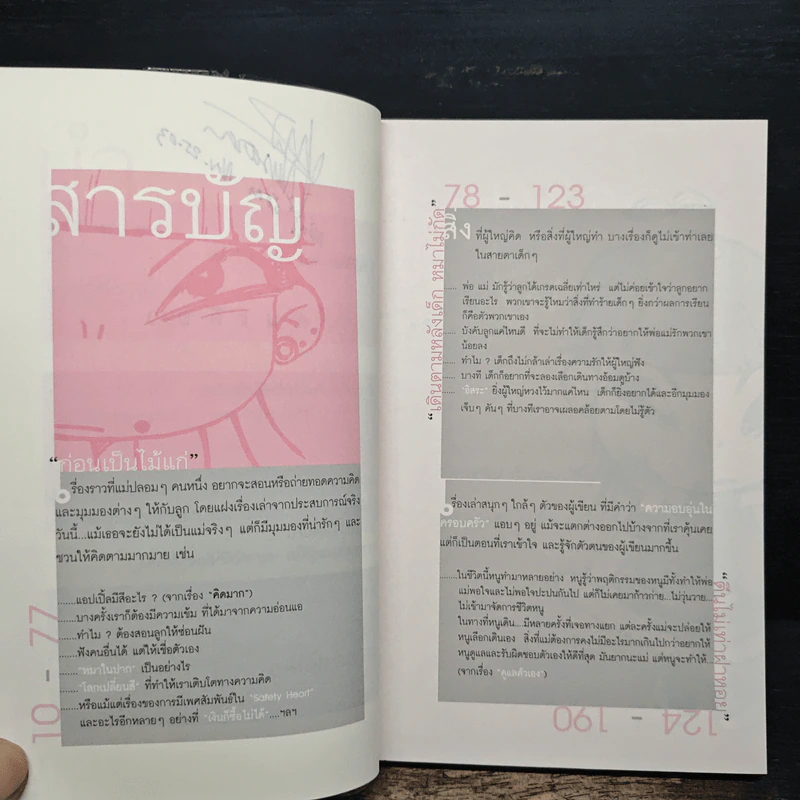 สารบัญ
"ก่อนเป็นไม้แก่"
เรื่องราวที่แม่ปลอมๆ คนหนึ่ง อยากจะสอนหรือถ่ายทอดความคิด
และมุมมองต่างๆ ให้กับลูก โดยแฝงเรื่องเล่าจากประสบการณ์จริง
วันนี้...แม้เธอจะยังไม่ได้เป็นแม่จริงๆ แต่ก็มีมุมมองที่น่ารักๆ และ
ชวนให้คิดตามมากมาย เช่น
......แอปเปิ้ลมีสีอะไร ? (จากเรื่อง "คิดมาก")
......บางครั้งเราก็ต้องมีความเข้ม ที่ได้มาจากความอ่อนแอ
......ทำไม ? ต้องสอนลูกให้ช่อนฝัน
......ฟังคนอื่นได้ แต่ให้เชื่อตัวเอง
......"หมาในปาก" เป็นอย่างไร
......"โลกเปลี่ยนสี" ที่ทำให้เราเติบโตทางความคิด
......หรือแม้แต่เรื่องของการมีเพศสัมพันธ์ใน "Safety Heart"
และอะไรอีกหลายๆ อย่างที่ "เงินก็ซื้อไม่ได้"....ฯลฯ
10 - 77
78 - 123
"เดินตามหลังเด็ก หมาไม่กัด"
สิ่ง ที่ผู้ใหญ่คิด หรือสิ่งที่ผู้ใหญ่ทำ บางเรื่องก็ดูไม่เข้าท่าเลย
ในสายตาเด็กๆ
..... พ่อ แม่ มักรู้ว่าลูกได้เกรดเฉลี่ยเท่าไหร่ แต่ไม่ค่อยเข้าใจว่าลูกอยาก
เรียนอะไร พวกเขาจะรู้ไหมว่าสิ่งที่ทำร้ายเด็กๆ ยิ่งกว่าผลการเรียน
ก็คือตัวพวกเขาเอง
..... บังคับลูกแค่ไหนดี ที่จะไม่ทำให้เด็กรู้สึกว่าอยากให้พ่อแม่รักพวกเขา
น้อยลง
..... ทำไม ? เด็กถึงไม่กล้าเล่าเรื่องความรักให้ผู้ใหญ่ฟัง
..... บางที เด็กก็อยากที่จะลองเลือกเดินทางอ้อมดูบ้าง
..... "อิสระ" ยิ่งผู้ใหญ่หวงไว้มากแค่ไหน เด็กก็ยิ่งอยากได้และอีกมุมมอง
เจ็บๆ คันๆ ที่บางทีเราอาจเผลอคล้อยตามโดยไม่รู้ตัว
เรื่องเล่าสนุกๆ ใกล้ๆ ตัวของผู้เขียน ที่มีคำว่า "ความอบอุ่นใน
ครอบครัว" แอบๆ อยู่ แม้จะแตกต่างออกไปบ้างจากที่เราคุ้นเคย
แต่ก็เป็นตอนที่เราเข้าใจ และรู้จักตัวตนของผู้เขียนมากขึ้น
.....ในชีวิตนี้หนูทำมาหลายอย่าง หนูรู้ว่าพฤติกรรมของหนูมีทั้งทำให้พ่อ
แม่พอใจและไม่พอใจปะปนกันไป แต่ก็ไม่เคยมาก้าวก่าย...ไม่วุ่นวาย...
ไม่เข้ามาจัดการชีวิตหนู
ในทางที่หนูเดิน....มีหลายครั้งที่เจอทางแยก แต่ละครั้งแม่จะปล่อยให้
หนูเลือกเดินเอง สิ่งที่แม่ต้องการคงไม่มีอะไรมากเกินไปกว่าอยากให้
หนูดูแลและรับผิดชอบตัวเองให้ดีที่สุด มันยากนะแม่ แต่หนูจะทำให้...
(จากเรื่อง "ดูแลตัวเอง")
"ตีนไม่เท่าฝาหอย"
124 - 190